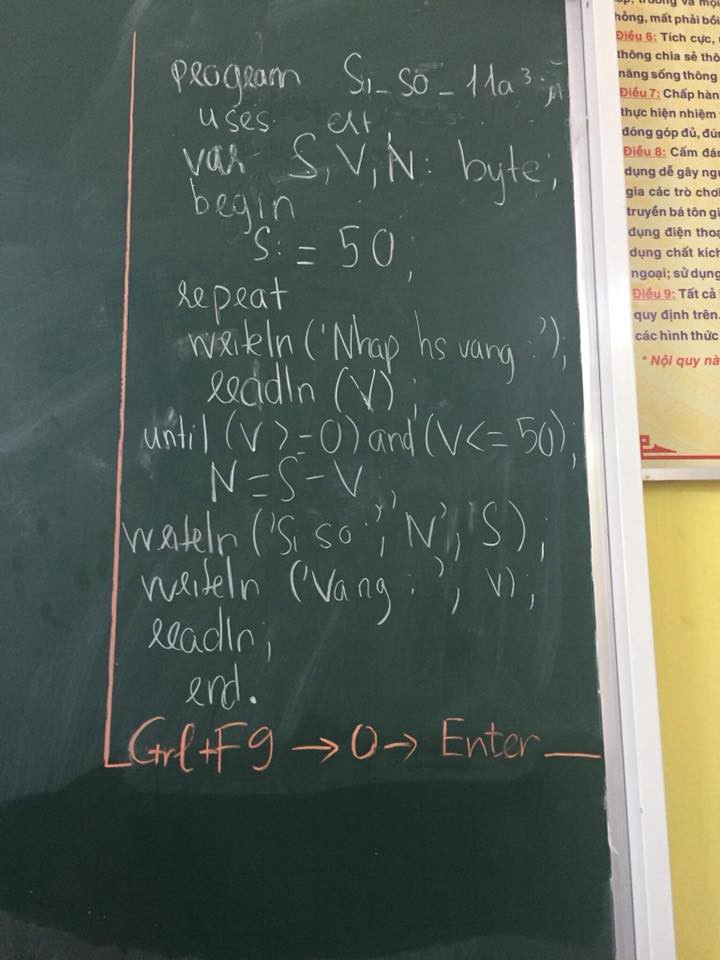 program Si_so_11a3;
uses crt,
var S,V,N: byte;
begin
S:=50;
repeat
writeln('Nhap hs vang:');
readln(V);
until(V>=0)and(V<=50);
N=S-V
writeln('Si so:','N','S);
writeln('Vang:',V);
readln;
end.
Ctrl+F9→0→Enter_
trường và mọi
hỏng, mất phải bồi
Điều 6: Tích cực,
thông chia sẻ thô
năng sống thông
Điều 7: Chấp hàn
thực hiện nhiệm
đóng góp đủ, đún
Điều 8: Cấm đán
dụng dễ gây ngu
gia các trò chơi
truyền bá tôn gi
dụng điện thoạ
dụng chất kích
ngoại; sử dụng
Điều 9: Tất cả
quy định trên.
các hình thức
* Nội quy nà